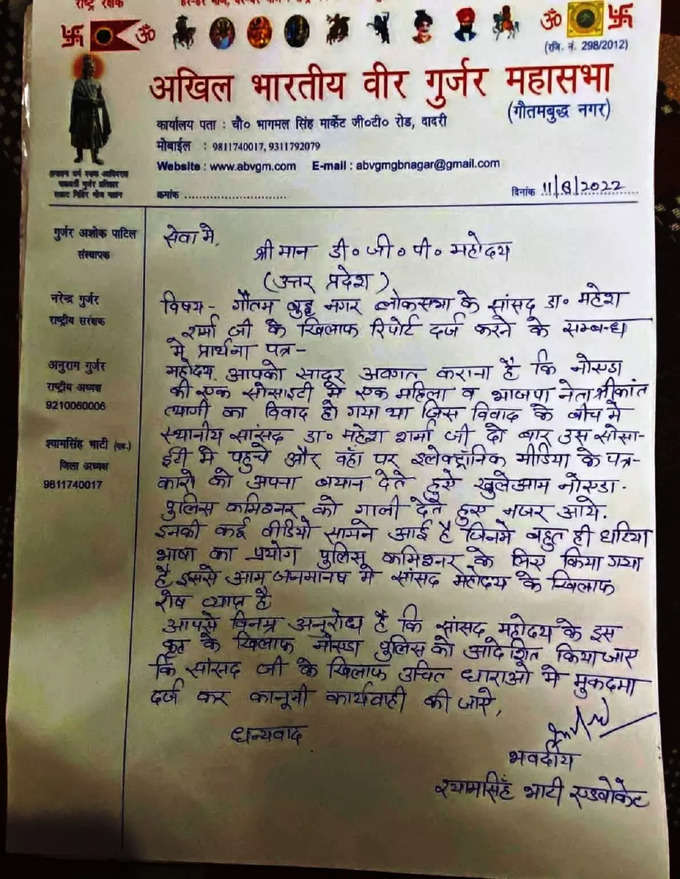 राष्ट्र रक्षक
(रजि. नं. 298/2012)
अखिल भारतीय वीर गुर्जर महासभा
(गौतमबुद्ध नगर)
कार्यालय पता : चौ० भागमल सिंह मार्केट जी०टी० रोड, दादरी
मोबाईल : 9811740017, 9311792079
Website : www.abvgm.com E-mail : abvgmgbnagar@gmail.com
क्रमांक ........................
दिनांक 11/8/2022
गुर्जर अशोक पाटिल
संस्थापक
नरेन्द्र गुर्जर
राष्ट्रीय सरंक्षक
अनुराग गुर्जर
राष्ट्रीय अध्यक्ष
9210060006
श्यामसिंह भाटी (एड.)
जिला अध्यक्ष
9811740017
सेवा मे,
श्रीमान डी० जी० पी० महोदय
(उत्तर प्रदेश)
विषय- गौतम बुद्ध नगर लोकसभा के सांसद डा० महेश
शर्मा जी के खिलाफ रिपोर्ट दर्ज करने के सम्बन्ध
मे प्रार्थना पत्र-
महोदय, आपको सादर अवगत कराना है कि नोएडा
की एक सोसाइटी मे एक महिला व भाजपा नेता श्रीकांत
त्यागी का विवाद हो गया था जिस विवाद के बीच मे
स्थानीय सांसद डा० महेश शर्मा जी दो बार उस सोसा-
ईटी मे पहुचे और वहाँ पर इलेक्ट्रॉनिक मीडिया के पत्र-
कारो को अपना बयान देते हुऐ खुलेआम नोएडा-
पुलिस कमिश्नर को गाली देते हुए नजर आये.
इनकी कई वीडियो सामने आई है जिनमे बहुत ही घटिया
भाषा का प्रयोग पुलिस कमिश्नर के लिए किया गया
है इससे आम जनमानष मे सांसद महोदय के खिलाफ
रोष व्याप्त है
आपसे विनम्र अनुरोध है कि सांसद महोदय के इस
कृत के खिलाफ नोएडा पुलिस को आदेशित किया जाए
कि सांसद जी के खिलाफ उचित धाराओ मे मुकदमा
दर्ज कर कानूनी कार्यवाही की जाऐ,
धन्यवाद
भवदीय
श्यामसिंह भाटी एडवोकेट